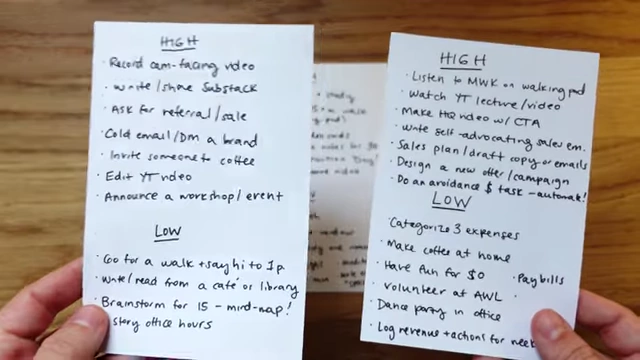 HIGH
· Record cam-facing video
· Write/share Substack
· Ask for referral/sale
· Cold email/Dm a brand
· Invite someone to coffee
· Edit YT video
· Announce a workshop/event
LOW
· Go for a walk + say hi to 1p
· Write/read from a café or library
· Brainstorm for 15 - mind-map!
· story office hours
HIGH
· Listen to MWK on walking pad
· Watch YT lecture/video
· Make HQ video w/ CTA
· Write self-advocating sales em.
· Sales plan/draft copy or emails
· Design a new offer/campaign
· Do an avoidance $ task - automat!
LOW
· Categorize 3 expenses
· Make coffee at home
· Have fun for $0
· Pay bills
· Volunteer at AWL
· Dance party in office
· Log revenue + actions for week